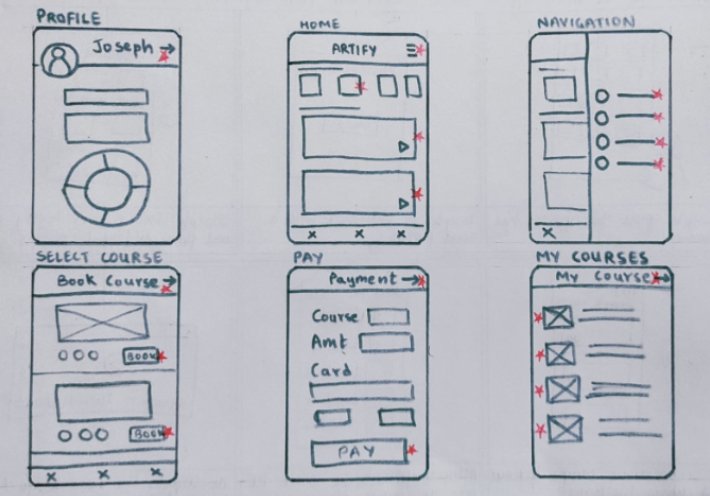 PROFILE
Joseph
HOME
ARTIFY
NAVIGATION
SELECT COURSE
Book Course
BOOK
BOOK
PAY
Payment
Course
Amt
Card
PAY
MY COURSES
My Course